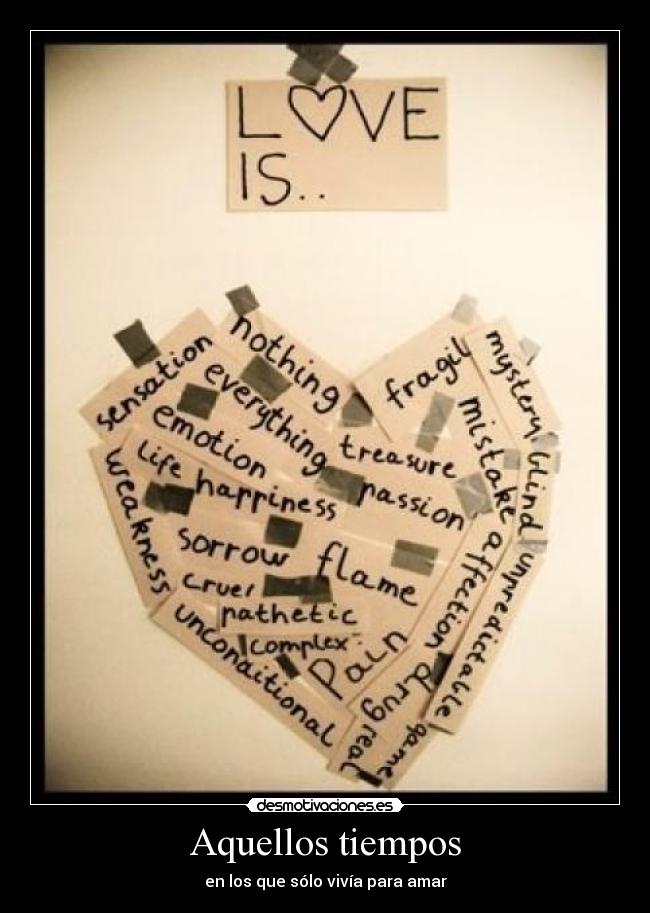 L♡VE
IS..
nothing
sensation
everything
emotion
life
happiness
weakness
fragil
mystery
mistake
treasure
passion
blind
sorrow
flame
affection
unpredictable
cruel
pathetic
complex
pain
unconditional
drug
real
game
desmotivaciones.es
Aquellos tiempos
en los que sólo vivía para amar